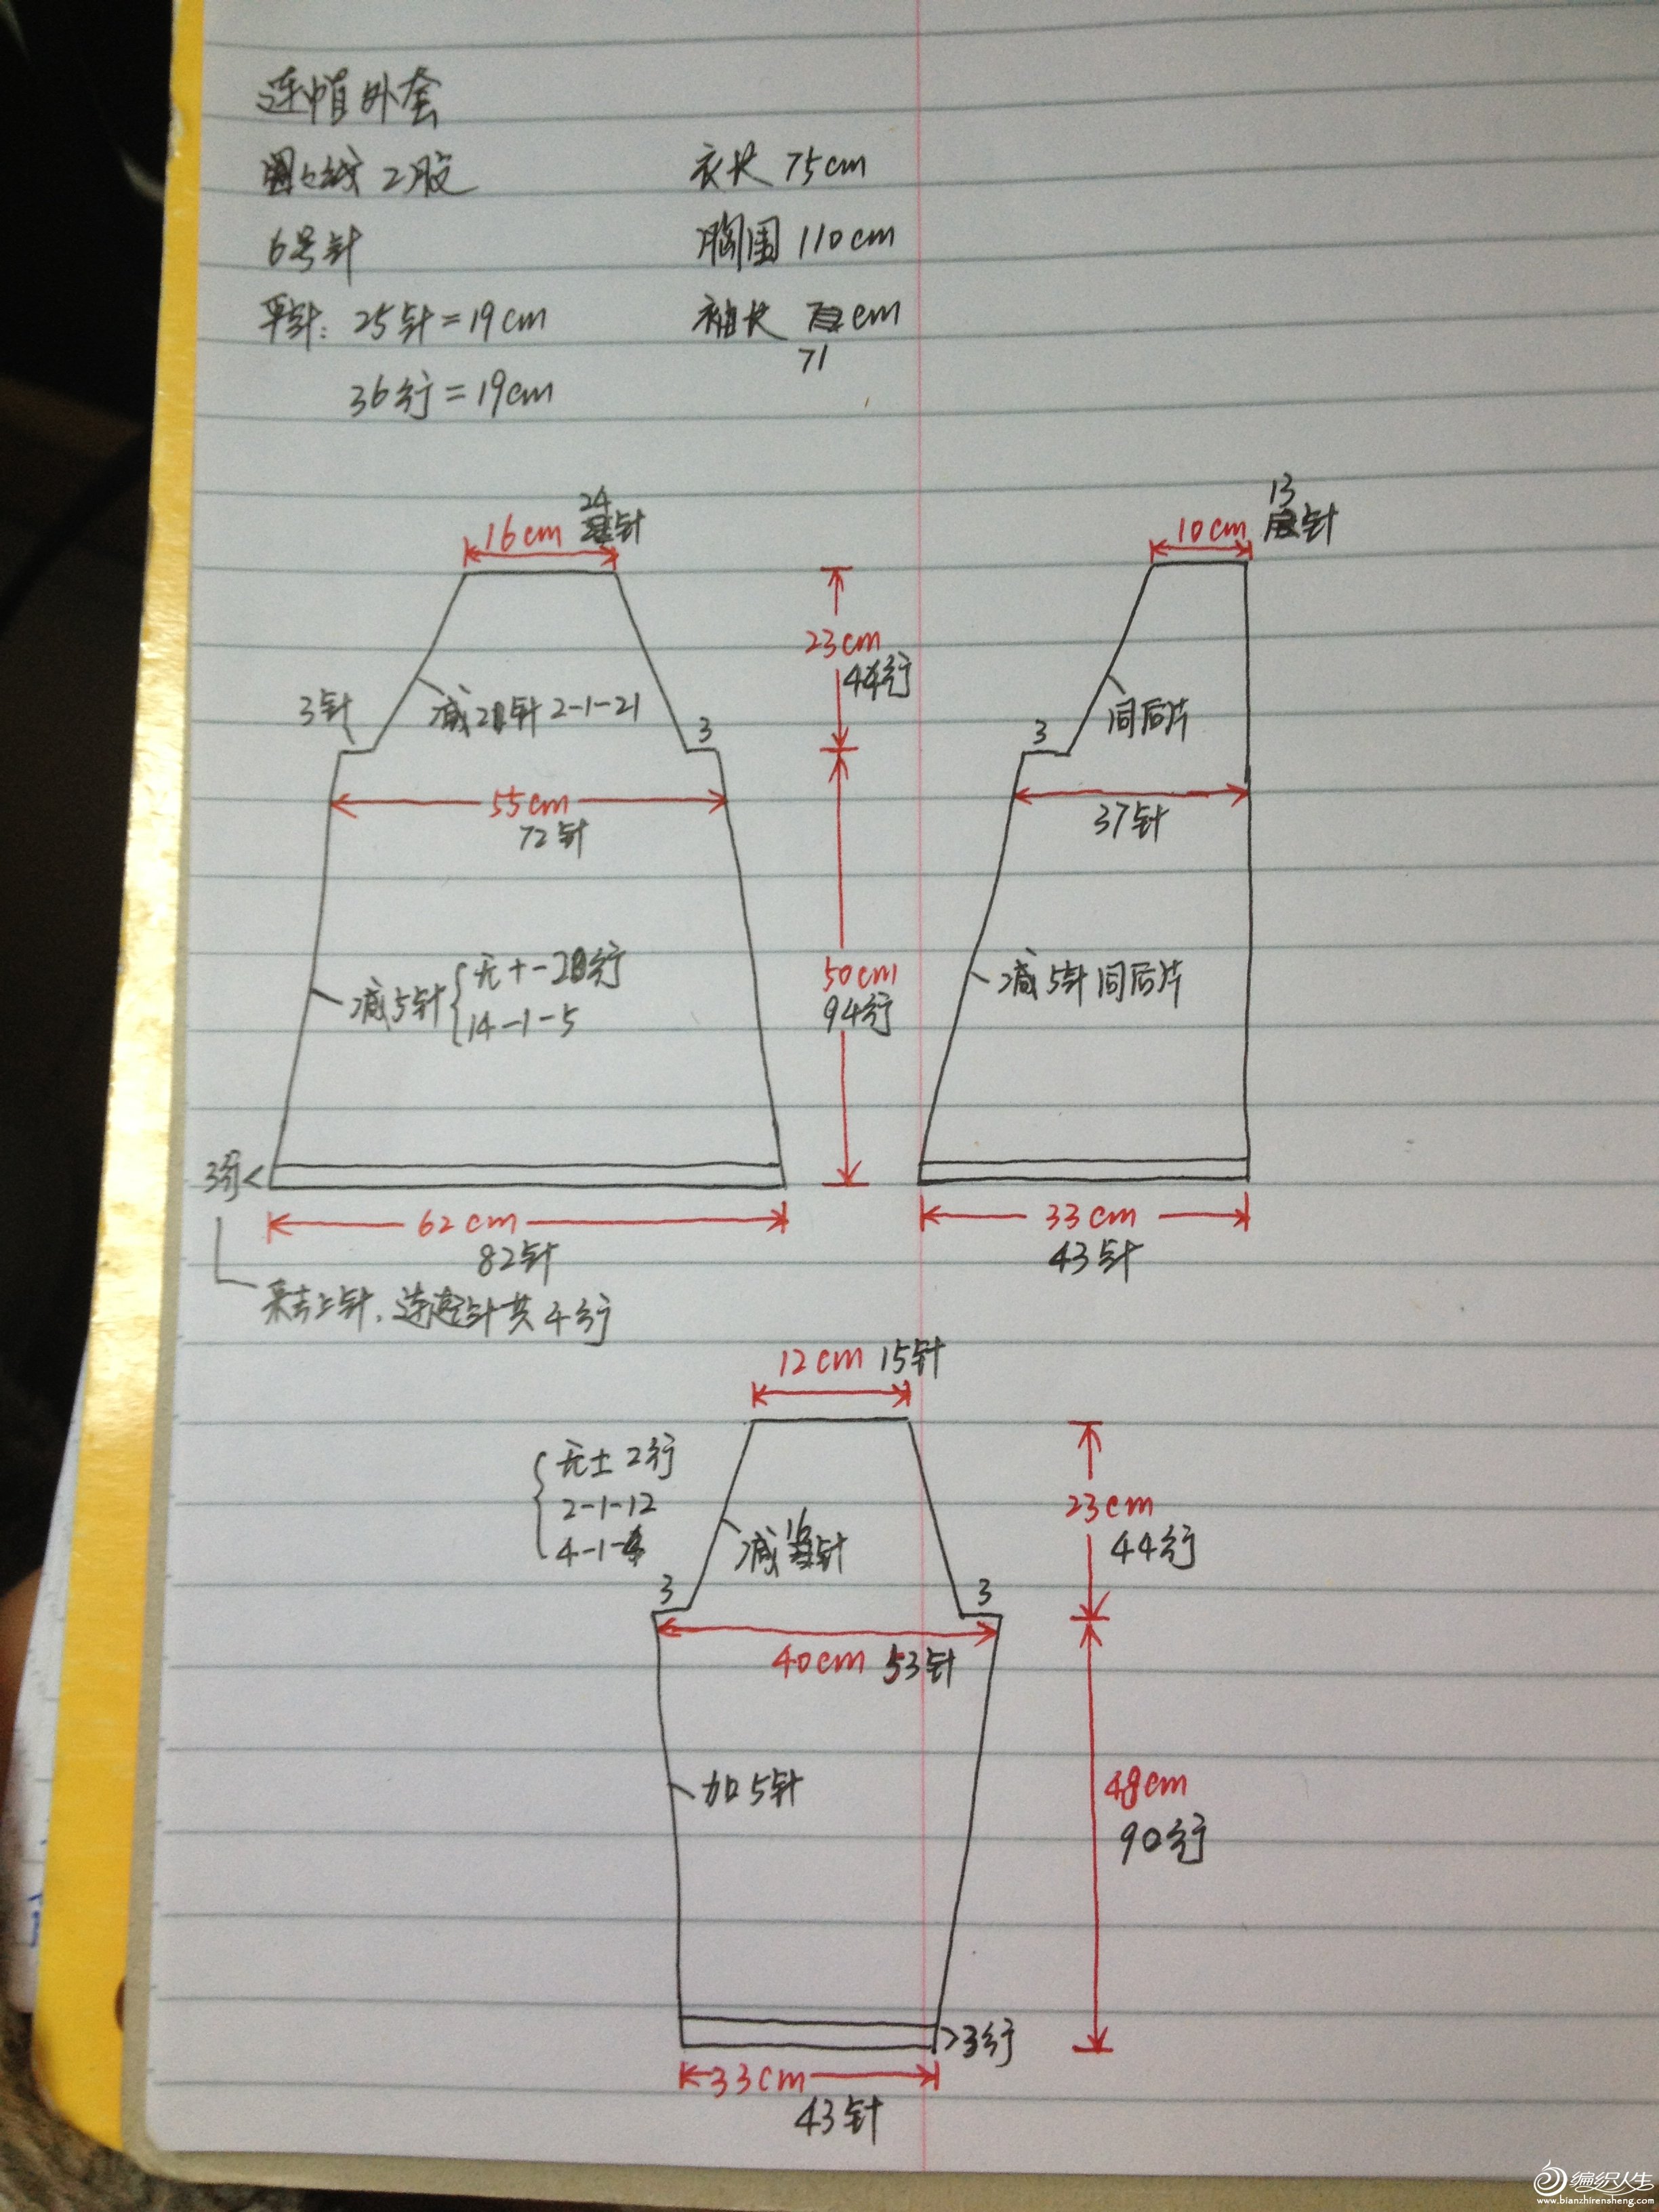 连帽外套
圈圈线 2股
6号针
平针: 25针=19cm
36行=19cm
衣长 75cm
胸围 110cm
袖长 cm
71
16cm 24针
3针
减21针 2-1-21
3
55cm
72针
减5针
无+-20行
14-1-5
3行<
62cm
82针
来去上针,连起针共4行
23cm
44行
50cm
94行
10cm 13针
3
同后片
37针
减5针同后片
33cm
43针
12cm 15针
无± 2行
2-1-12
4-1-4
减16针
3
3
40cm 53针
23cm
44行
加5针
48cm
90行
>3行
33cm
43针
编织人生
www.bianzhirensheng.com